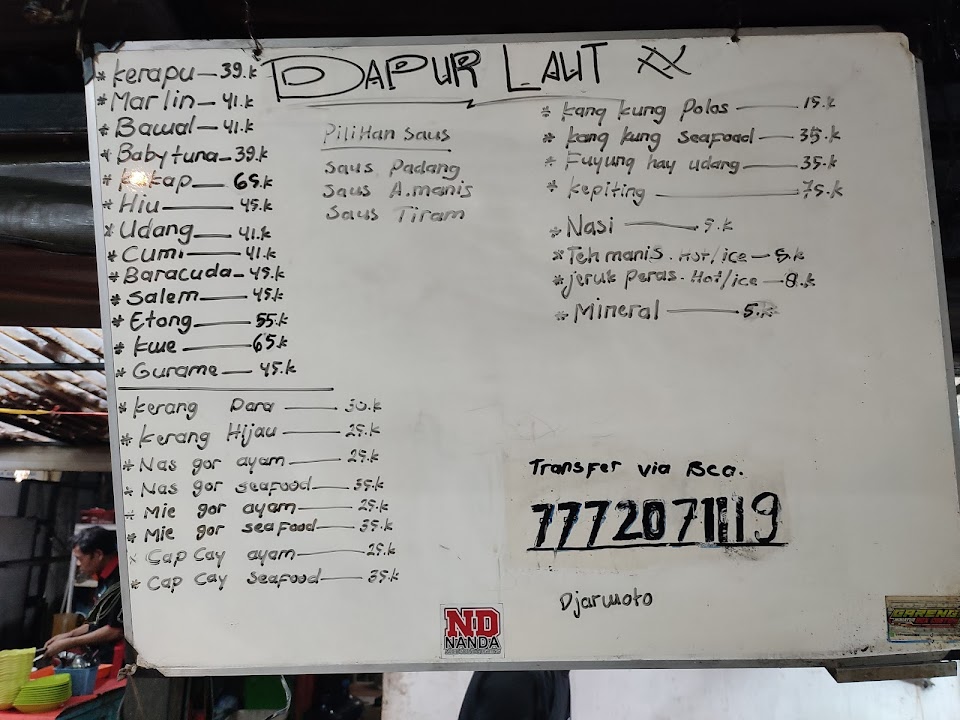 DAPUR LAUT XX
* Kerapu — 39.k
* Marlin — 41.k
* Bawal — 41.k
* Baby tuna — 39.k
* Kakap — 65.k
* Hiu — 45.k
* Udang — 41.k
* Cumi — 41.k
* Baracuda — 45.k
* Salem — 45.k
* Etong — 55.k
* Kwe — 65.k
* Gurame — 45.k
* Kerang Dara — 30.k
* Kerang Hijau — 25.k
* Nas gor ayam — 25.k
* Nas gor seafood — 35.k
* Mie gor ayam — 25.k
* Mie gor seafood — 35.k
* Cap Cay ayam — 25.k
* Cap Cay seafood — 35.k
Pilihan saus
Saus Padang
Saus A.manis
Saus Tiram
* Kang kung Polos — 15.k
* Kang kung seafood — 35.k
* Fuyung hay udang — 35.k
* Kepiting — 75.k
* Nasi — 5.k
* Teh manis. Hot/ice — 5.k
* jeruk peras. Hot/ice — 8.k
* Mineral — 5.k
Transfer via Bca.
7772071119
Djarwoto
ND
NANDA